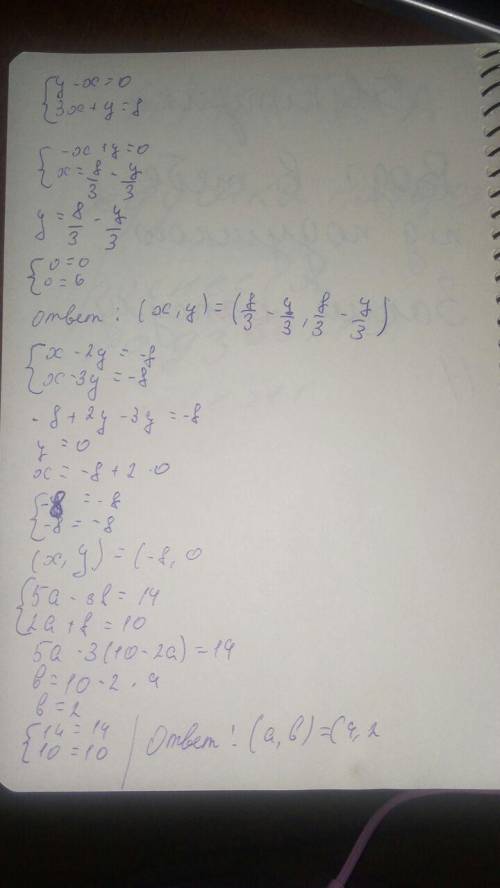 y - x = 0
3x + y = 8
-x + y = 0
x = 8/3 - y/3
y = 8/3 - y/3
0 = 0
0 = 0
Ответ: (x, y) = (8/3 - y/3, 8/3 - y/3)
x - 2y = -8
x - 3y = -8
-8 + 2y - 3y = -8
y = 0
x = -8 + 2 · 0
-8 = -8
-8 = -8
(x, y) = (-8, 0
5a - 3b = 14
2a + b = 10
5a - 3(10 - 2a) = 14
b = 10 - 2 · 4
b = 2
14 = 14
10 = 10
Ответ: (a, b) = (4, 2